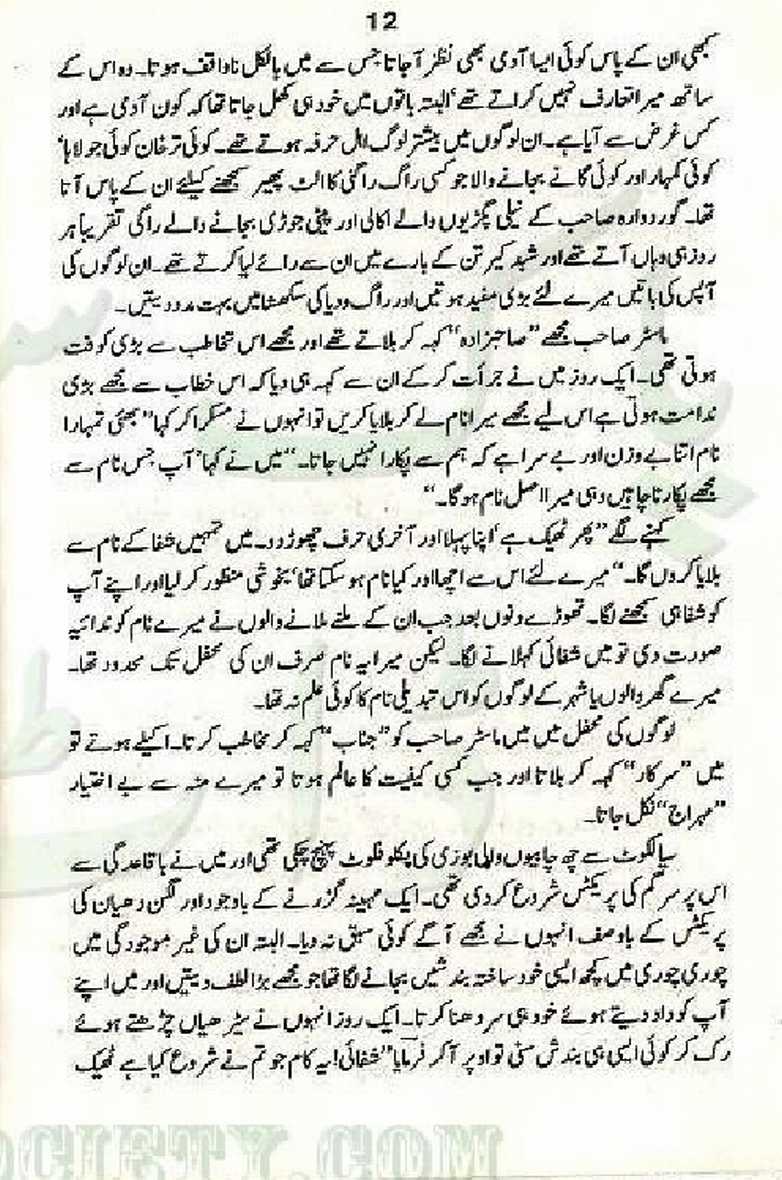 12
کبھی ان کے پاس کوئی ایسا آدمی بھی نظر آ جاتا جس سے میں بالکل ناواقف ہوتا۔ وہ اس کے
ساتھ میرا تعارف نہیں کراتے تھے‘ البتہ باتوں میں خود ہی کھل جاتا تھا کہ کون آدمی ہے اور
کس غرض سے آیا ہے۔ ان لوگوں میں بیشتر لوگ اہل حرفہ ہوتے تھے۔ کوئی ترخان کوئی جولاہا‘
کوئی کمہار اور کوئی گانے بجانے والا جو کسی راگ راگنی کا الٹ پھیر سمجھنے کیلئے ان کے پاس آتا
تھا۔ گوردوارہ صاحب کے نیلی پگڑیوں والے اکالی اور پیٹی جوڑی بجانے والے راگی تقریباً ہر
روز ہی وہاں آتے تھے اور شبد کیرتن کے بارے میں ان سے رائے لیا کرتے تھے۔ ان لوگوں کی
آپس کی باتیں میرے لئے بڑی مفید ہوتیں اور راگ ودیا کی سکھشا میں بہت مدد دیتیں۔
ماسٹر صاحب مجھے ’’صاحبزادہ‘‘ کہہ کر بلاتے تھے اور مجھے اس تخاطب سے بڑی کوفت
ہوتی تھی۔ ایک روز میں نے جرأت کر کے ان سے کہہ ہی دیا کہ اس خطاب سے مجھے بڑی
ندامت ہوتی ہے اس لیے مجھے میرا نام لے کر بلایا کریں تو انہوں نے مسکرا کر کہا ’’بھئی تمہارا
نام اتنا بے وزن اور بے سرا ہے کہ ہم سے پکارا نہیں جاتا۔‘‘ میں نے کہا‘ آپ جس نام سے
مجھے پکارنا چاہیں وہی میرا اصل نام ہو گا۔‘‘
کہنے لگے ’’پھر ٹھیک ہے‘ اپنا پہلا اور آخری حرف چھوڑ دو۔ میں تمہیں شفا کے نام سے
بلایا کروں گا۔‘‘ میرے لئے اس سے اچھا اور کیا نام ہو سکتا تھا‘ بخوشی منظور کر لیا اور اپنے آپ
کو شفا ہی سمجھنے لگا۔ تھوڑے دنوں بعد جب ان کے ملنے ملانے والوں نے میرے نام کو ندائیہ
صورت دی تو میں شفائی کہلانے لگا۔ لیکن میرا یہ نام صرف ان کی محفل تک محدود تھا۔
میرے گھر والوں یا شہر کے لوگوں کو اس تبدیلی نام کا کوئی علم نہ تھا۔
لوگوں کی محفل میں میں ماسٹر صاحب کو ’’جناب‘‘ کہہ کر مخاطب کرتا۔ اکیلے ہوتے تو
میں ’’سرکار‘‘ کہہ کر بلاتا اور جب کسی کیفیت کا عالم ہوتا تو میرے منہ سے بے اختیار
’’مہراج‘‘ نکل جاتا۔
سیالکوٹ سے چھ چابیوں والی بوزی کی پکلو فلوٹ پہنچ چکی تھی اور میں نے باقاعدگی سے
اس پر سرگم کی پریکٹس شروع کر دی تھی۔ ایک مہینہ گزرنے کے باوجود اور لگن دھیان کی
پریکٹس کے باوصف انہوں نے مجھے آگے کوئی سبق نہ دیا۔ البتہ ان کی غیر موجودگی میں
چوری چوری میں کچھ ایسی خود ساختہ بندشیں بجانے لگا تھا جو مجھے بڑا لطف دیتیں اور میں اپنے
آپ کو داد دیتے ہوئے خود ہی سر دھنا کرتا۔ ایک روز انہوں نے سیڑھیاں چڑھتے ہوئے
رک کر کوئی ایسی ہی بندش سنی تو اوپر آ کر فرمایا ’’شفائی! یہ کام جو تم نے شروع کیا ہے ٹھیک
OCIETY.COM